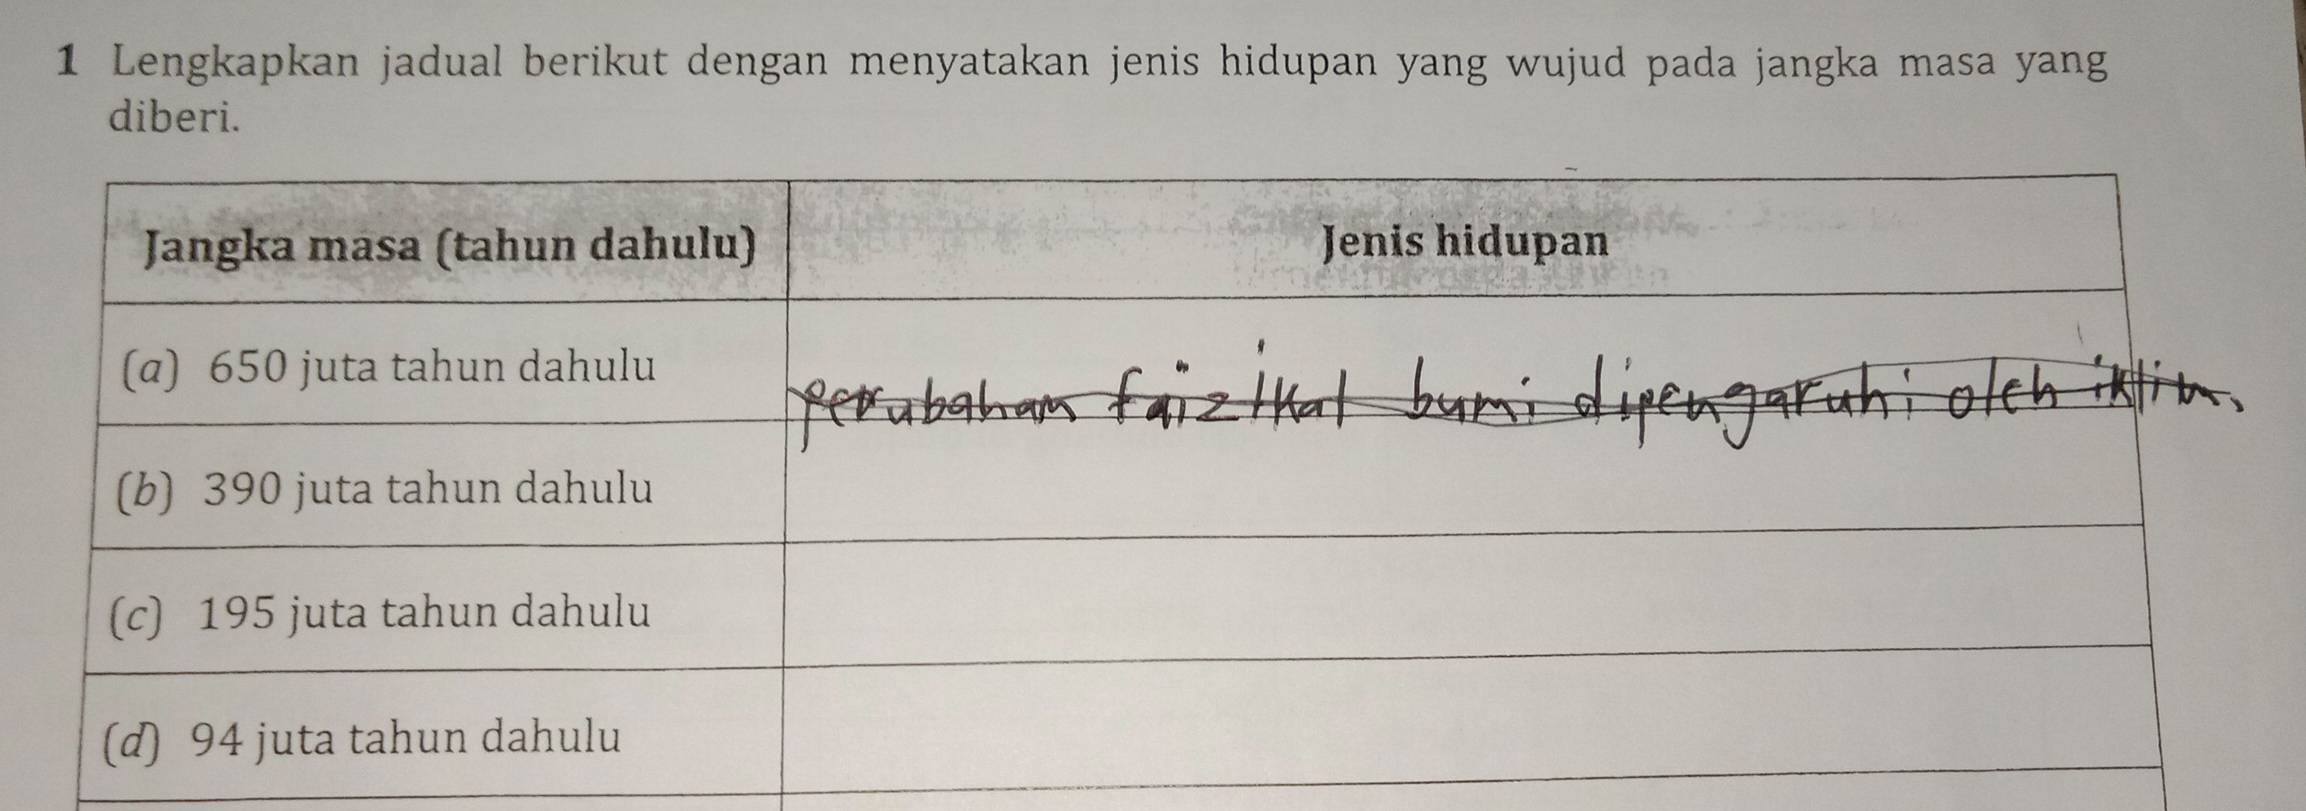 1 Lengkapkan jadual berikut dengan menyatakan jenis hidupan yang wujud pada jangka masa yang
diberi.
Jangka masa (tahun dahulu)
Jenis hidupan
(a) 650 juta tahun dahulu
perubahan faizikal bumi dipengaruhi oleh iklim.
(b) 390 juta tahun dahulu
(c) 195 juta tahun dahulu
(d) 94 juta tahun dahulu